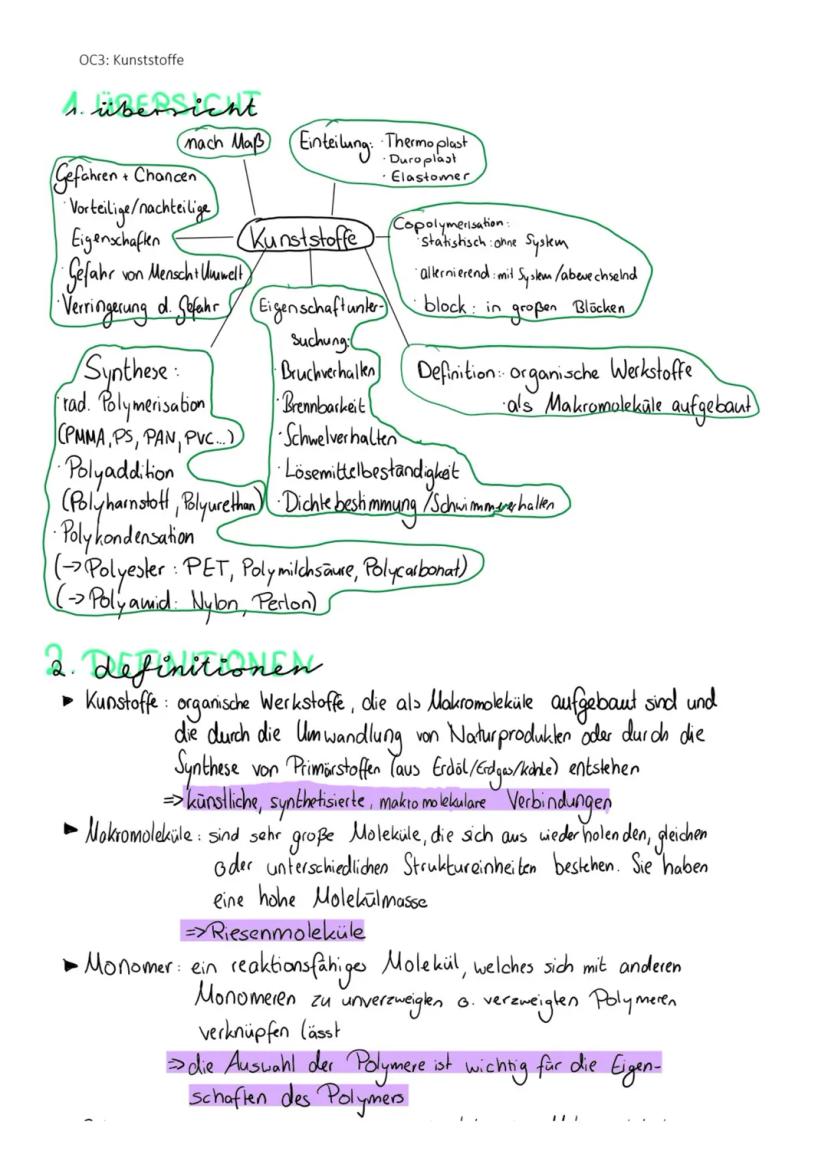 OC3: Kunststoffe
1. übersicht
nach Maß
Einteilung: · Thermoplast
· Duroplast
· Elastomer
Gefahren + Chancen
· Vorteilige/nachteilige
Eigenschaften
· Gefahr von Mensch+Umwelt
· Verringerung d. Gefahr
Kunststoffe
Copolymerisation:
· statistisch: ohne System
· alternierend: mit System/abwechselnd
· block: in großen Blöcken
Eigenschaftunter-
suchung:
· Bruchverhalten
· Brennbarkeit
· Schwelverhalten
· Lösemittelbeständigkeit
· Dichtebestimmung/Schwimmverhalten
Definition: · organische Werkstoffe
· als Makromoleküle aufgebaut
Synthese:
· rad. Polymerisation
(PMMA, PS, PAN, PVC...)
· Polyaddition
(Polyharnstoff, Polyurethan)
· Polykondensation
(→ Polyester: PET, Polymilchsäure, Polycarbonat)
(→ Polyamid: Nylon, Perlon)
2. definitionen
► Kunstoffe: organische Werkstoffe, die als Makromoleküle aufgebaut sind und
die durch die Umwandlung von Naturprodukten oder durch die
Synthese von Primärstoffen (aus Erdöl/Erdgas/Kohle) entstehen
=> künstliche, synthetisierte, makromolekulare Verbindungen
► Makromoleküle: sind sehr große Moleküle, die sich aus wiederholenden, gleichen
oder unterschiedlichen Struktureinheiten bestehen. Sie haben
eine hohe Molekülmasse
=> Riesenmoleküle
► Monomer: ein reaktionsfähiges Molekül, welches sich mit anderen
Monomeren zu unverzweigten o. verzweigten Polymeren
verknüpfen lässt
=> die Auswahl der Polymere ist wichtig für die Eigen-
schaften des Polymers